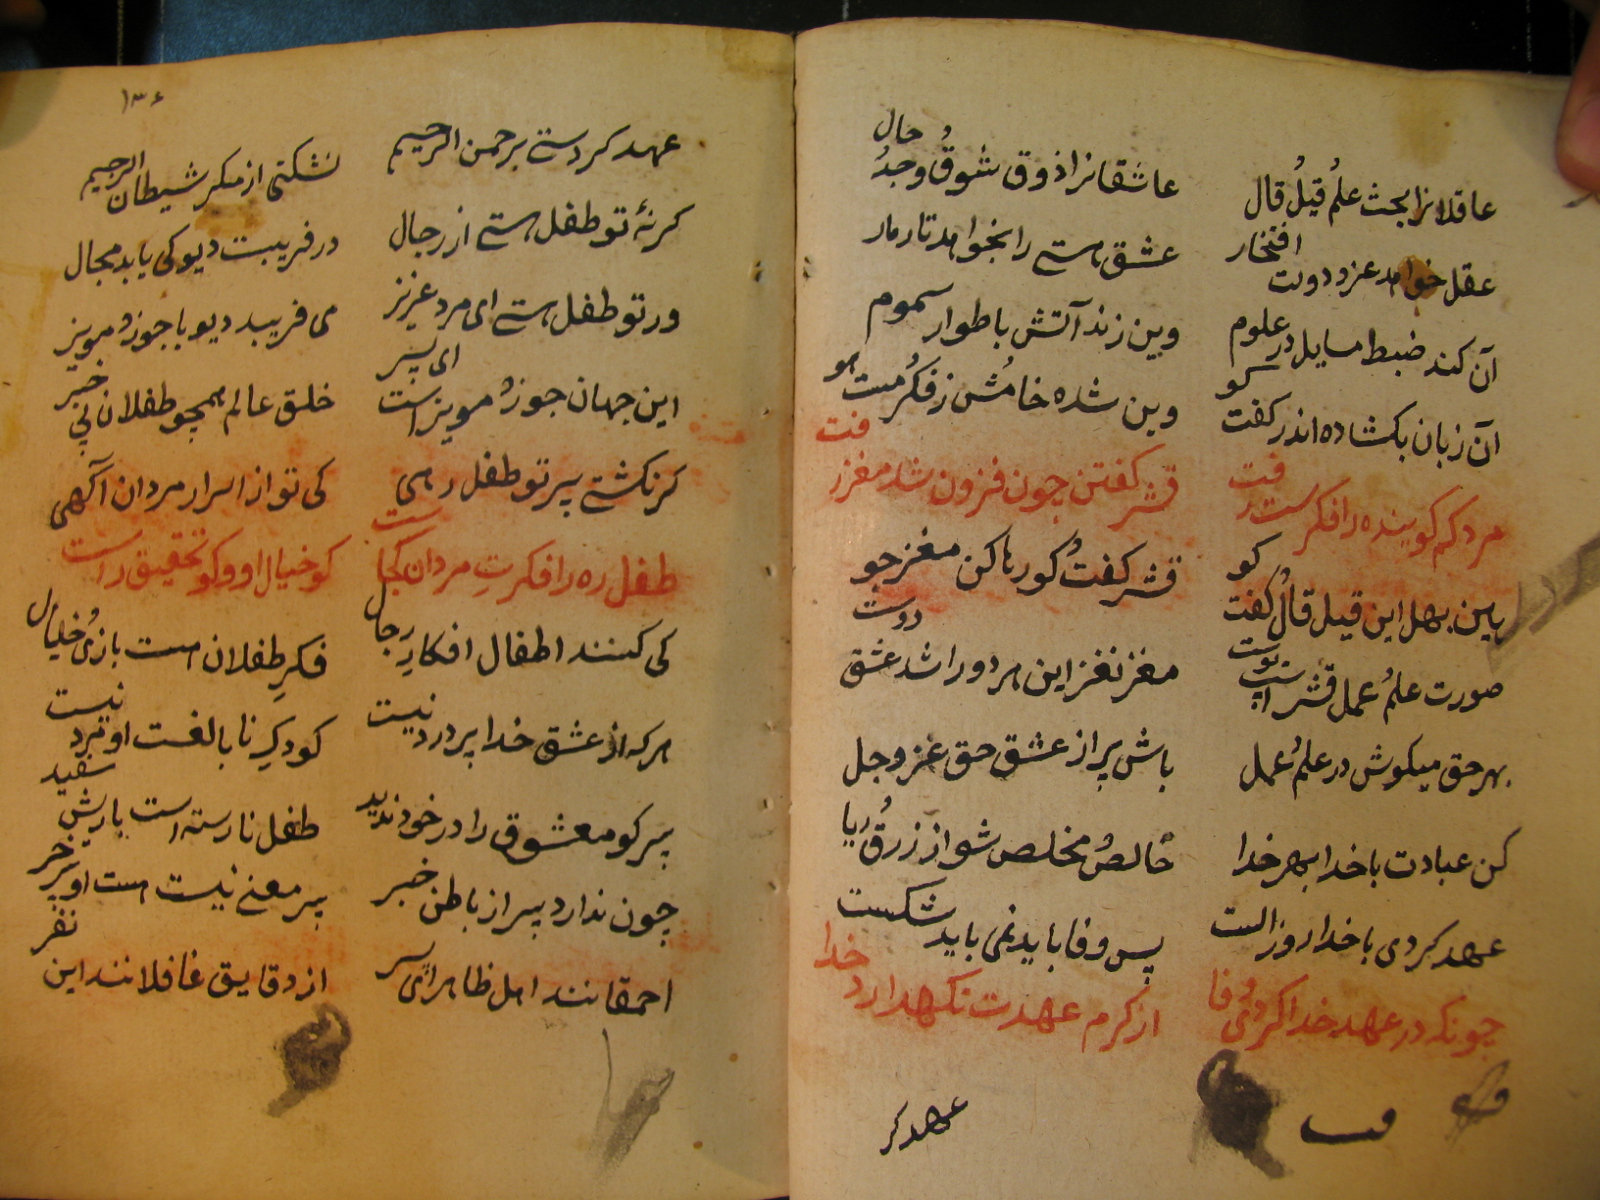 عاقلانرا بحث علم قیل قال عاشقانرا ذوق شوق وجد حال
عقل خواهد عز و دولت افتخار عشق هستی را بخواهد تار مار
آن کند ضبط مسایل در علوم وین زند آتش باطوار سموم
آن زبان بکشاده اندر کفت کو وین شده خامش ز فکر مست هو
مرد کم کوینده را فکرست رفت قشر کفتن چون فزون شد مغز رفت
هین بهل این قیل قال کفت کو قشر کفت کو رها کن مغز جو
صورت علم عمل قشر است پوست مغز نغز این هر دو را شد عشق دوست
بهر حق میکوش در علم عمل باش پر از عشق حق عز و جل
کن عبادت با خدا بهر خدا خالص مخلص شو از زرق ریا
عهد کردی با خدا روز الست پس وفا باید نمی باید شکست
چونکه در عهد خدا کردی وفا از کرم عهدت نکهدارد خدا
عهد کر
۱۳۶
عهد کردستی برحمن الرحیم نشکنی از مکر شیطان الرجیم
کرنهٔ تو طفل هستی از رجال در فریبت دیو کی یابد مجال
ور تو طفل هستی ای مرد عزیز می فریبد دیو با جوز مویز
این جهان جوز مویز است ای پسر خلق عالم همچو طفلان بی خبر
کرنکشتی پیر تو طفل رهی کی تو از اسرار مردان آکهی
طفل ره را فکرت مردان کجاست کو خیال او و کو تحقیق راست
کی کنند اطفال افکار رجال فکر طفلان هست بازی خیال
هر که از عشق خدا پر درد نیست کودک نا بالغست او مرد نیست
پیر کو معشوق را در خود ندید طفل نارسته است با ریش سفید
چون ندارد پیر از باطن خبر پیر معنی نیست هست او پیر خر
احمقانند اهل ظاهر ای از دقایق غافلانند این نفر